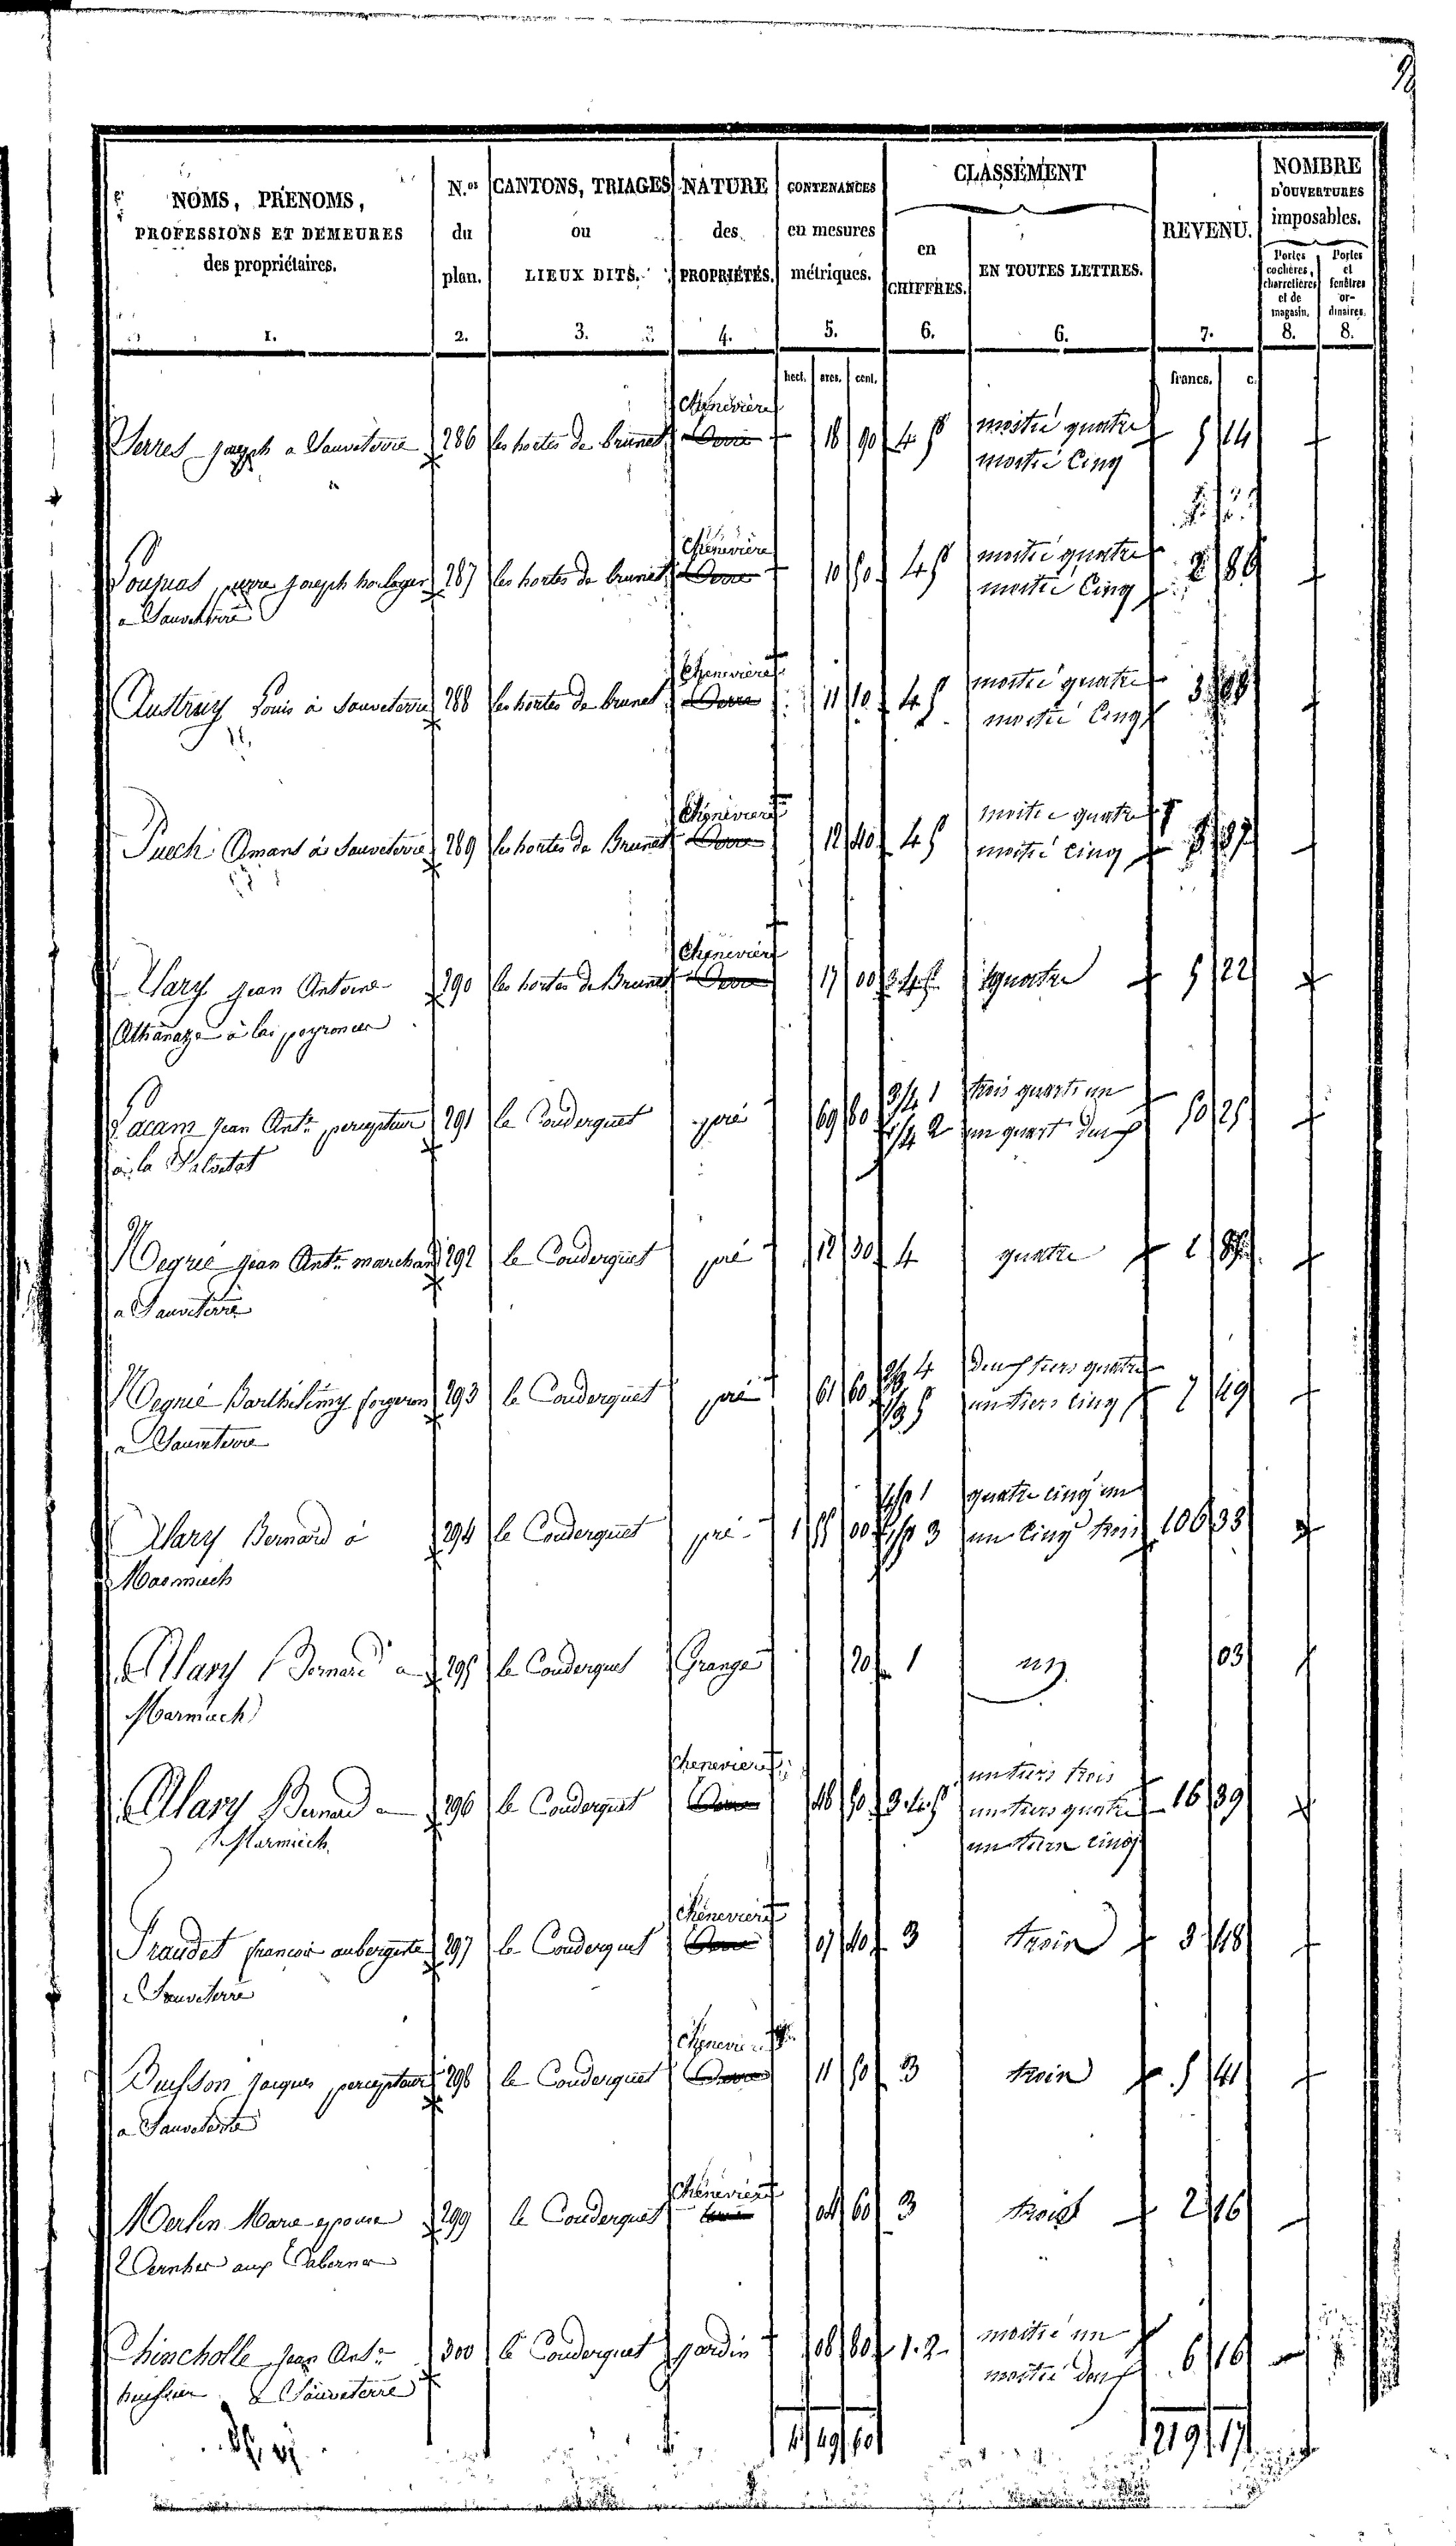 NOMS, PRÉNOMS, PROFESSIONS ET DEMEURES des propriétaires. 1.
N.os du plan. 2.
CANTONS, TRIAGES ou LIEUX DITS. 3.
NATURE des PROPRIÉTÉS. 4.
CONTENANCES en mesures métriques. 5.
CLASSEMENT
en CHIFFRES. 6.
EN TOUTES LETTRES. 6.
REVENU. 7.
NOMBRE D'OUVERTURES imposables.
Portes cochères, charretières et de magasin. 8.
Portes et fenêtres ordinaires. 8.
hect. ares. cent. francs. c.
Chenevière moitié quatre
Serres joseph a Sauveterre 286 les hortes de brunet Terre 18 90 4 5 moitié Cinq 5 14
Chenevière moitié quatre
pierre joseph horloger 287 les hortes de brunet Terre 10 50 4 5 moitié Cinq 2 86
a Sauveterre
Chenevière moitié quatre
Austruy Louis à Sauveterre 288 les hortes de brunet Terre 11 10 4 5 moitié Cinq 3
Chenevière moitié quatre
Puech Amans à Sauveterre 289 les hortes de Brunet Terre 12 40 4 5 moitié cinq 3 37
Chenevière
Alary jean Antoine 290 les hortes de Brunet Terre 17 00 quatre 5 22
Athanaze à la peyronie
3/4 1 trois quarts un
Lacam jean Ant.e percepteur 291 le Couderquet pré 69 60 1/4 2 un quart deux 50 25
à la Salvetat
Negrié jean Ant.e marchand 292 le Couderquet pré 12 30 4 quatre 1
a Sauveterre
2/3 4 Deux tiers quatre
Negrié Barthélémy forgeron 293 le Couderquet pré 61 60 1/3 5 un tiers cinq 7 49
a Sauveterre
4/5 1 quatre cinq un
Alary Bernard à 294 le Couderquet pré 1 55 00 1/5 3 un Cinq trois 106 33
Marmiech
Alary Bernard a 295 le Couderquet Grange 20 1 un 03
Marmiech
Chenevière un tiers trois
Alary Bernard a 296 le Couderquet Terre 48 50 3.4.5 un tiers quatre 16 39
Marmiech un tiers cinq
Chenevière
françois aubergiste 297 le Couderquet Terre 07 40 3 trois 3 48
a Sauveterre
Chenevière
Buisson jacques percepteur 298 le Couderquet Terre 11 50 3 trois 5 41
a Sauveterre
Chenevière
Merlin Marie epouse 299 le Couderquet terre 04 60 3 trois 2 16
Vernhes aux Tabernes
moitié un
Chincholle jean Ant.e 300 le Couderquet jardin 08 80 1.2 moitié deux 6 16
huissier a Sauveterre
4 49 60 219 17